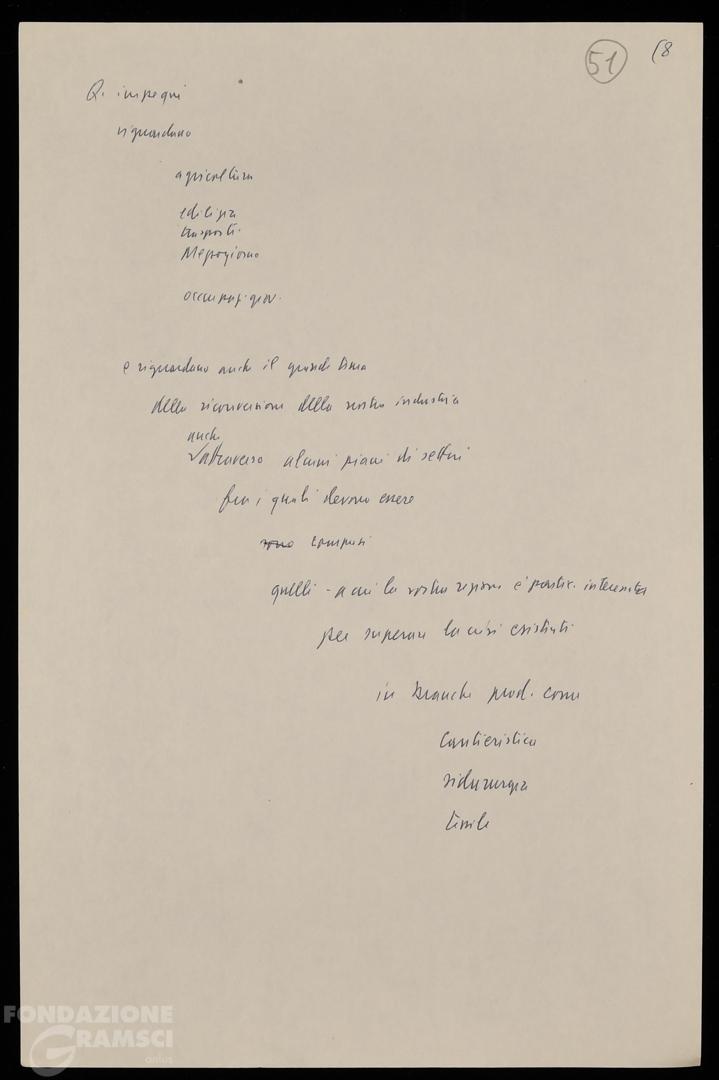 51
(8
Q. impegni
riguardano
agricoltura
edilizia
trasporti.
Mezzogiorno
occupaz. giov.
e riguardano anche il grande tema
della riconversione della nostra industria
anche
attraverso alcuni piani di settori
fra i quali devono essere
sono compresi
quelli - a cui la nostra regione è partic. interessata
per superare la crisi esistenti
in branche prod. come
Cantieristica
Siderurgia
tessile
FONDAZIONE
GRAMSCI
onlus